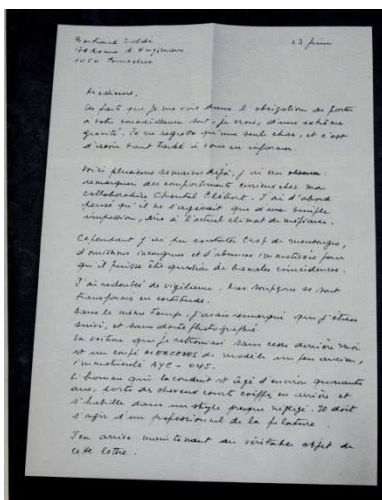 23 juin
1050 Bruxelles
Messieurs,
Un fait que je me vois dans l'obligation de porter
à votre connaissance est, je crois, d'une extrême
gravité. Je ne regrette qu'une seule chose, et c'est
d'avoir tant tardé à vous en informer.
Voici plusieurs semaines déjà, j'ai
remarqué des comportements curieux chez ma
collaboratrice Chantal Clébart. J'ai d'abord
pensé qu'il ne s'agissait que d'une simple
impression, due à l'actuel climat de méfiance.
Cependant j'ai pu constater trop de mensonges,
d'omissions incongrues et d'absences injustifiées pour
qu'il puisse être question de banales coïncidences.
J'ai redoublé de vigilance. Mes soupçons se sont
transformés en certitude.
Dans le même temps j'avais remarqué que j'étais
suivi, et sans doute photographié.
La voiture que je retrouvais sans cesse derrière moi
est un coupé MERCEDES de modèle un peu ancien,
immatriculé AYC-045.
L'homme qui la conduit est âgé d'environ quarante
ans, porte des cheveux courts coiffés en arrière et
s'habille dans un style propre négligé. Il doit
s'agir d'un professionnel de la filature.
J'en arrive maintenant au véritable objet de
cette lettre.